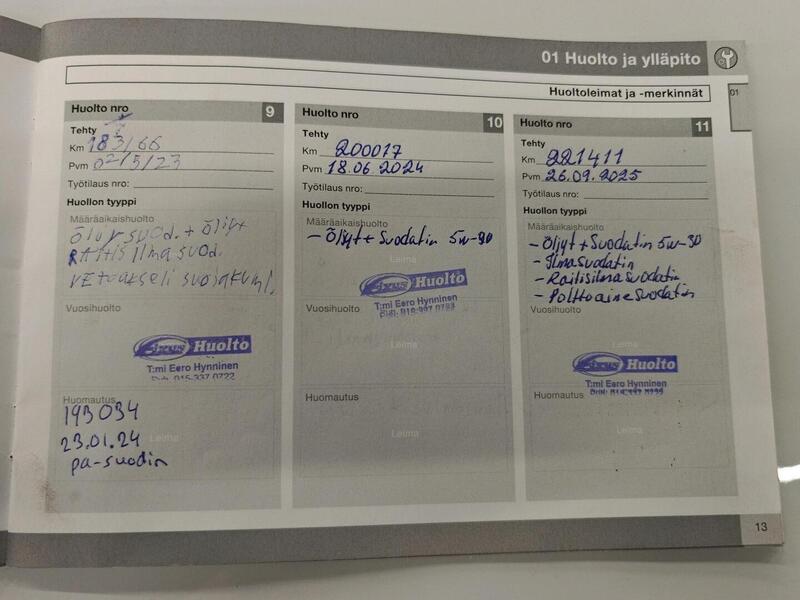 01 Huolto ja ylläpito
Huoltoleimat ja -merkinnät
01
Huolto nro 9
Tehty
Km 183166
Pvm 02/5/23
Työtilaus nro:
Huollon tyyppi
Määräaikaishuolto
Öljy suod. + Öljyt
Raitis ilma suod.
vetoakseli suojakumi.
Vuosihuolto
Huolto
T:mi Eero Hynninen
Huomautus
193034
23.01.24
Leima
pa-suodin
Huolto nro 10
Tehty
Km 200017
Pvm 18.06.2024
Työtilaus nro:
Huollon tyyppi
Määräaikaishuolto
- Öljyt + Suodatin 5w-30
Leima
Huolto
T:mi Eero Hynninen
Vuosihuolto
Leima
Huomautus
Leima
Huolto nro 11
Tehty
Km 221411
Pvm 26.09.2025
Työtilaus nro:
Huollon tyyppi
Määräaikaishuolto
- Öljyt + Suodatin 5w-30
- Ilmasuodatin
- Raitisilmasuodatin
- Polttoainesuodatin
Vuosihuolto
Huolto
T:mi Eero Hynninen
Huomautus
Leima
13